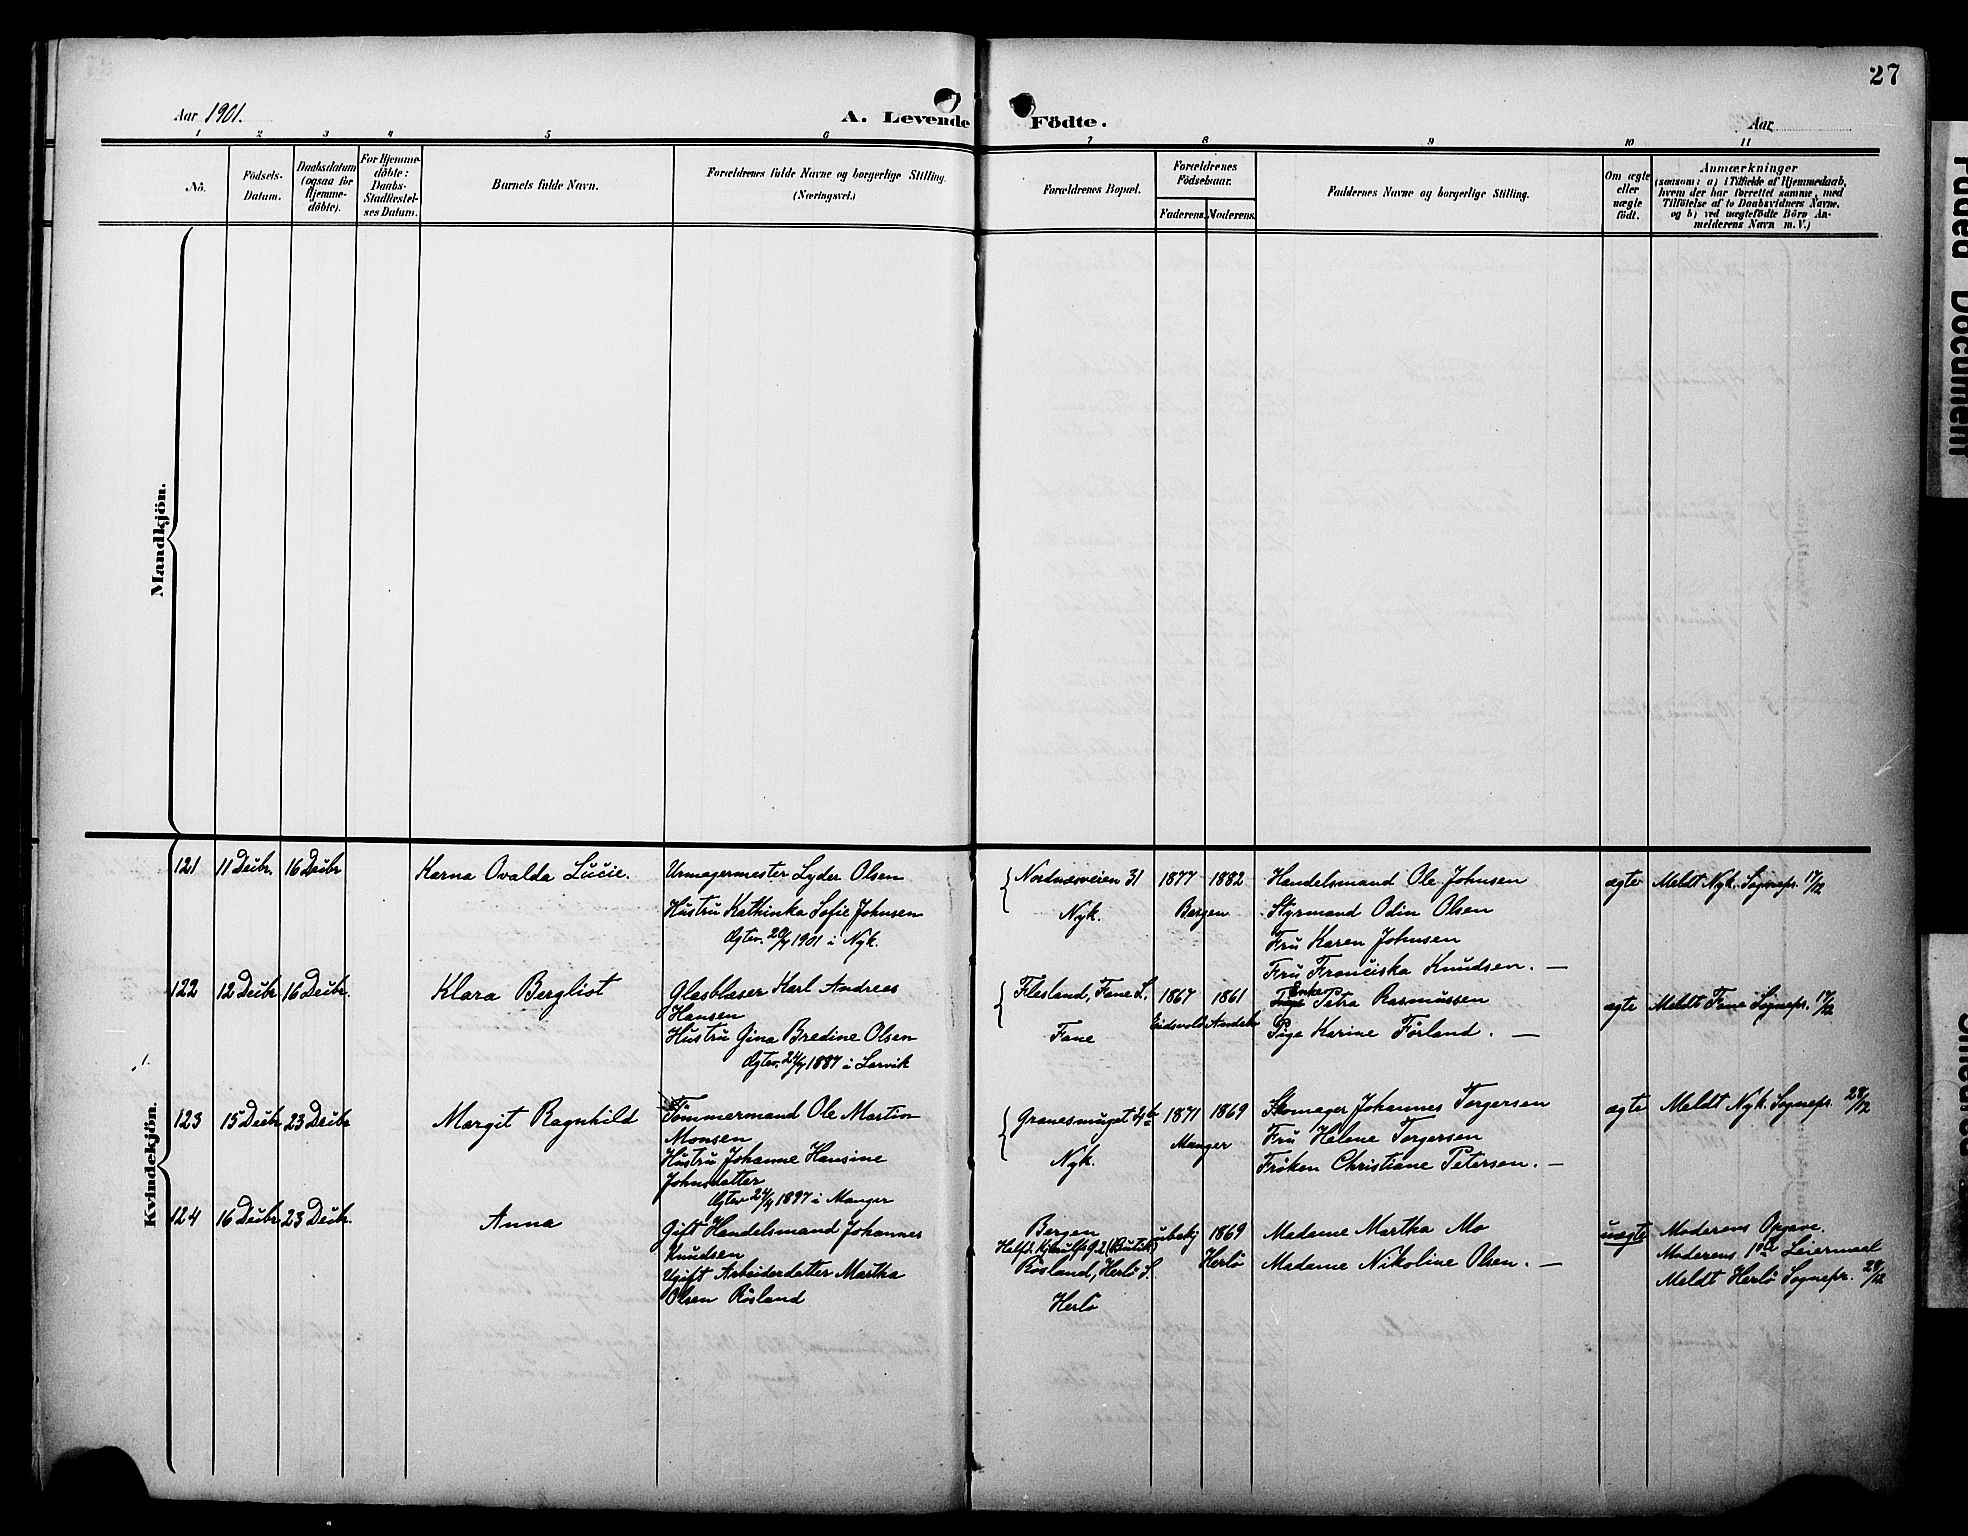 27
Aar 1901.
A. Levende Födte.
Aar
1 2 3 4 5 6 7 8 9 10 11
No.
Födsels-Datum.
Daabsdatum (ogsaa for Hjemme-döbte).
For Hjemme-döbte: Daabs-Stadfæstel-ses Datum.
Barnets fulde Navn.
Forældrenes fulde Navne og borgerlige Stilling.
(Næringsvei.)
Forældrenes Bopæl.
Forældrenes Födselsaar.
Faderens. Moderens.
Faddernes Navne og borgerlige Stilling.
Om ægte eller uægte födt.
Anmærkninger
(saasom: a) i Tilfælde af Hjemmedaab,
hvem der har forrettet samme, med
Tilföielse af to Daabsvidners Navne.
og b) ved uægtefödte Börn An-
melderens Navn m. V.)
Mandkjön.
Kvindekjön.
121 11 Decbr. 16 Decbr Karna Ovalda Lucie. Urmagermester Lyder Olsen Nordnæsveien 31 1877 1882 Handelsmand Ole Johnsen ægte Meldt Nyk. Sognepr. 17/12
Hustru Kathinka Sofie Johnsen Nyk. Bergen Styrmand Odin Olsen
Ægtev. 1901 i Nyk. Fru Karen Johnsen
Fru Franciska Knudsen. —
122 12 Decbr 16 Decbr. Klara Bergliot Glasblæser Karl Andreas Flesland, Fane S. 1867 1861 Enke Petra Rasmussen ægte Meldt Fane Sognepr. 17/12
Hansen Eidsvold Andebu
Hustru Gina Bredine Olsen Fane Pige Karine Förland. —
Ægtev. 1887 i Larvik
123 15 Decbr 23 Decbr Margit Ragnhild Tömmermand Ole Martin 1871 1869 Skomager Johannes Torgersen ægte Meldt Nyk. Sognepr. 28/12
Monsen Manger Fru Helene Torgersen
Hustru Johanne Hansine Nyk. Fröken Christiane Petersen. —
Johnsdatter
Ægtev. 1897 i Manger
124 16 Decbr 23 Decbr. Anna Gift Handelsmand Johannes Bergen ubekj 1869 Madame Martha Mo uægte Moderens Opgave.
Knudsen Halfd. Kjerulfsg 2 (Butik) Herlö Moderens 1ste Leiermaal
Ugift Arbeiderdatter Martha Rösland, Herlö S. Madame Nikoline Olsen. — Meldt Herlö Sognepr. 28/12
Olsen Rösland Herlö
Faded Document